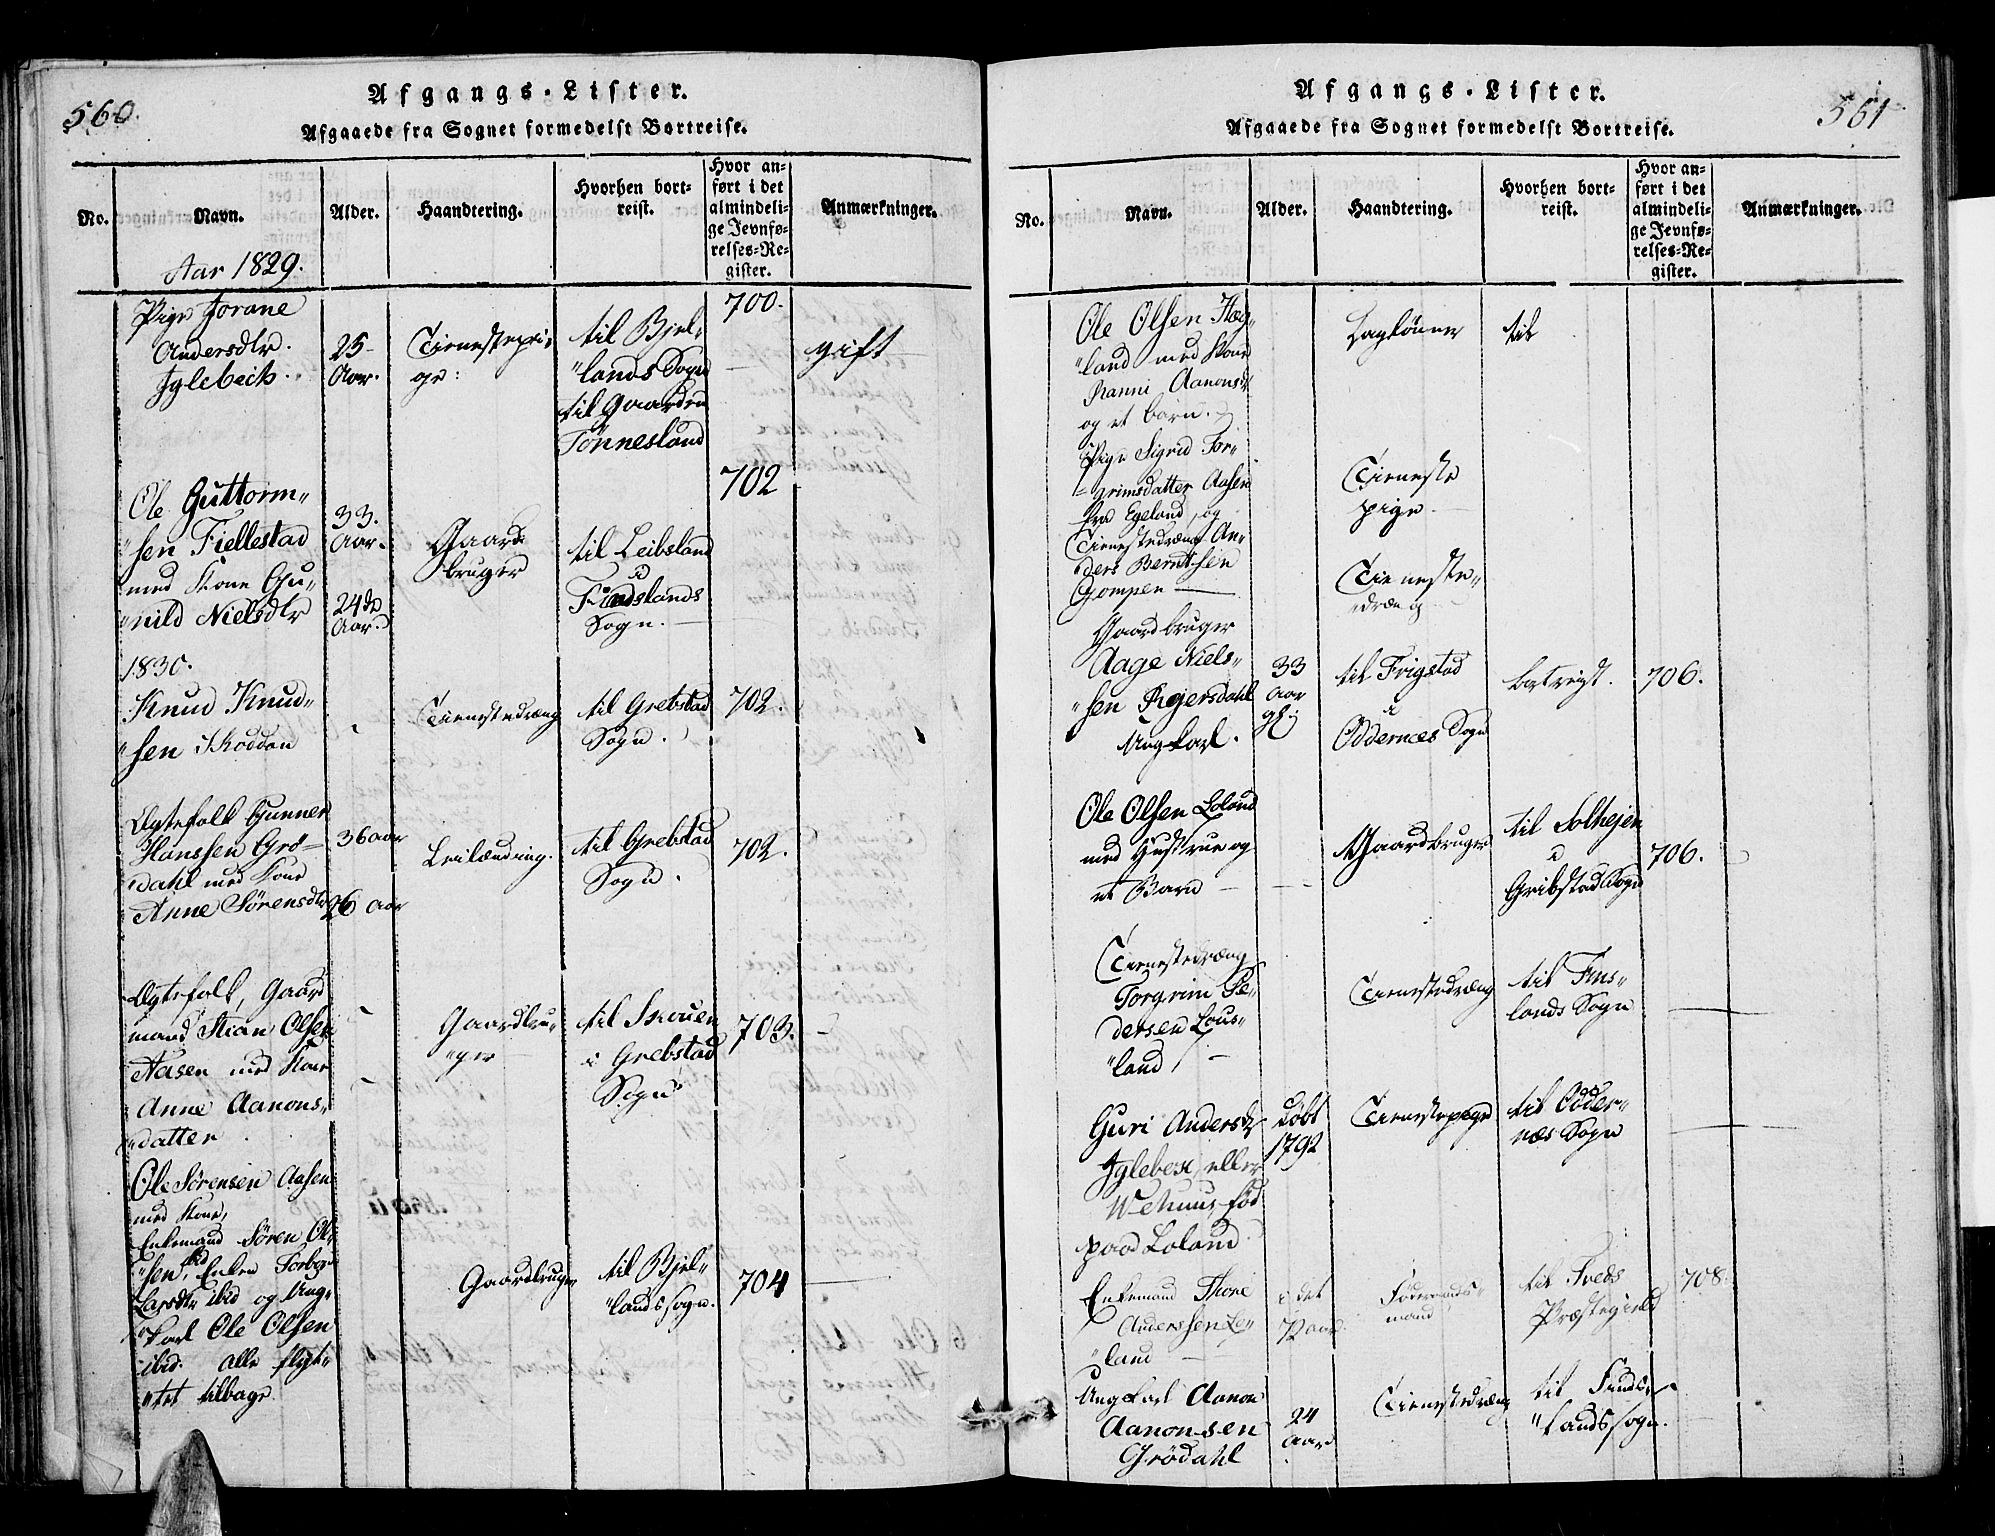 560.
Afgangs-Lister.
Afgaaede fra Sognet formedelst Bortreise.
No.
Navn.
Alder.
Haandtering.
Hvorhen bort-
reist.
Hvor an-
ført i det
almindeli-
ge Jevnfø-
relses-Re-
gister.
Anmærkninger.
Aar 1829.
Pige Jorane
Andersdtr.
Iglebeck.
25
Aar.
Tienestepi-
ge:
til Bjel-
"lands Sogn
til Gaarden
Tønnesland
700.
gift
Ole Guttorm"
"sen Fiellestad
med Kone Gu"
"nild Nielsdtr
33.
Aar.
24de
Aar.
Gaard
bruger
til Leibsland
i
Findslands
Sogn.
702
1830.
Knud Knud"
"sen Koddan
Tienestedræng
til Grebstad
Sogn.
702.
Ægtefolk Gunner
Hanssen Grø-
dahl med Kone
Anne Sørensdtr
36 aar
26 aar
Leilænding.
til Grebstad
Sogn.
702.
Ægtefolk, Gaard
mand Stian Olsen
Aasen med Kone
Anne Aanons"
"datter
Gaardbru"
"ger
til
i Grebstad
Sogn
703.
Ole Sørensen Aasen
med Kone,
Enkemand Søren Ol"
"sen, ibid, Enken Torbor
Larsdtr ibid og Ung"
"karl Ole Olsen
ibid. alle flyt"
"tet tilbage
Gaardbruger
til Bjel"
"lands sogn.
704
561
Afgangs-Lister.
Afgaaede fra Sognet formedelst Bortreise.
No.
Navn.
Alder.
Haandtering.
Hvorhen bort-
reist.
Hvor an-
ført i det
almindeli-
ge Jevnfø-
relses-Re-
gister.
Anmærkninger.
Ole Olsen Hæg"
"land med Kone
Ranni Aanonsd
og et barn.
Dagløner
til
Pige Sigrid Tor"
"grimsdatter Aasen
fra Egeland, og
Tienestedræng An"
ders Berntsen
Gompen
Tieneste
pige
Tieneste"
"dræng
Gaardbruger
Aage Niels"
"sen Rejersdahl
Ungkarl.
33
Aar
gl:
til Frigstad
i
Oddernæs Sogn
bortreist.
706.
Ole Olsen Loland
med Hustrue og
et Barn
Gaardbruger
til Solhejen
i
Gribstad Sogn
706.
Tienestedræng
Torgrim Pe"
dersen Lous"
"land
Tienestedræng
til Fins"
lands Sogn
Guri Andersd
Iglebæk, eller
Wehuus, fød
paa Loland
Døbt
1792
Tienestepige
til Odder"
næs Sogn
Enkemand Thore
Anderssen Lo"
"land
i det
72 aar.
Føderaads"
mand
til Treds
Præstegield
708.
Ungkarl Aanon
Aanonsen
Grødahl
24
Aar
Tienestedræng
til Finds"
"lands sogn.